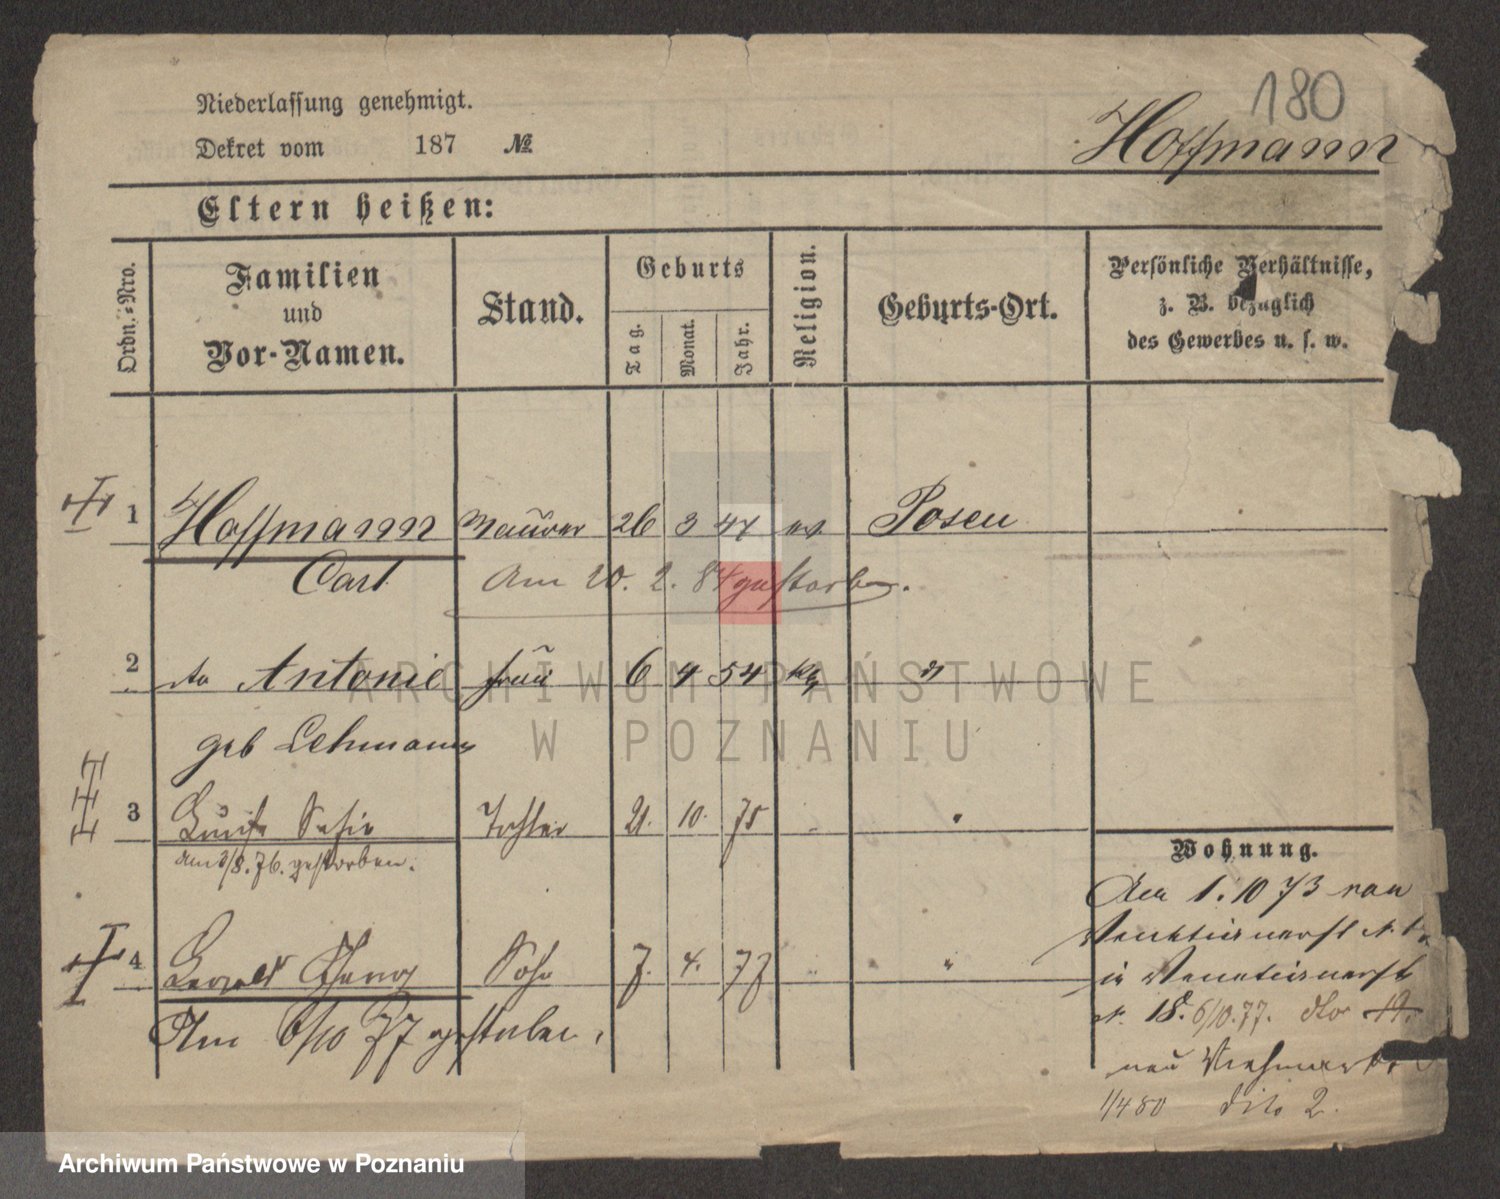 180
Niederlassung genehmigt.
Dekret vom 187 №
Hoffmann
Eltern heißen:
Ordn.-Nro.
Familien
und
Vor-Namen.
Stand.
Geburts
Tag.
Monat.
Jahr.
Religion.
Geburts-Ort.
Persönliche Verhältnisse,
z. B. bezüglich
des Gewerbes u. s. w.
1 Hoffmann Maurer 26 3 47 ev Posen
Carl Am 20. 2. 84 gestorben.
2 Antonie Frau 6 4 54 kt
geb Lehmann
3 Tochter 21. 10. 75
am 3/8. 76. gestorben.
Wohnung.
1. 10 73
4 Sohn 7. 4. 77
18. 6/10. 77. 19.
Am 6/10 77 gestorben.
1/4 80 dito 2.
ARCHIWUM PAŃSTWOWE
W POZNANIU
Archiwum Państwowe w Poznaniu